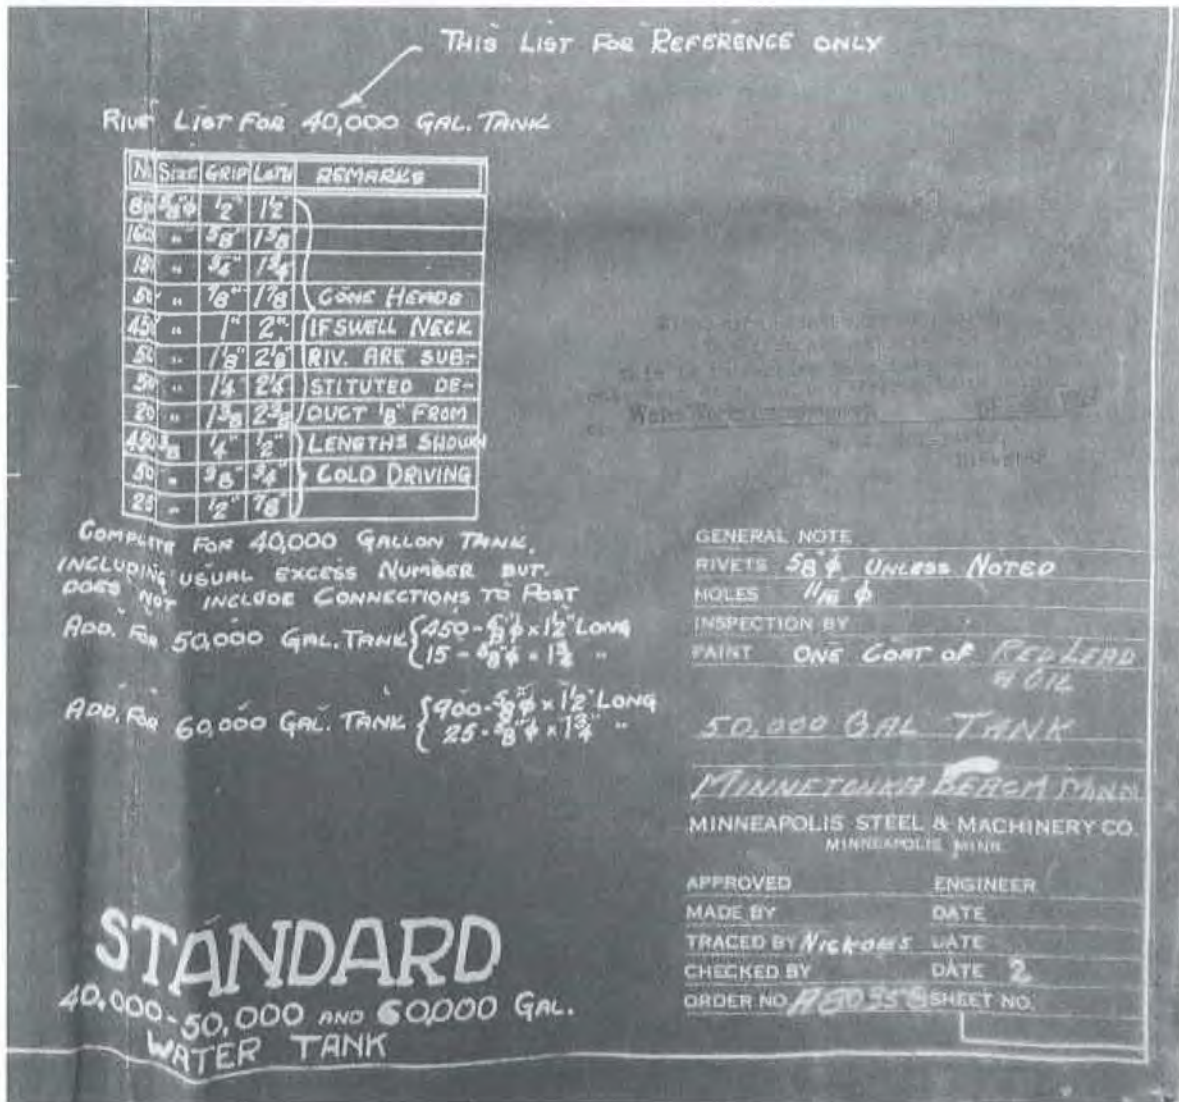 THIS LIST FOR REFERENCE ONLY
RIVET LIST FOR 40,000 GAL. TANK
No SIZE GRIP LGTH REMARKS
5/8"φ 1/2" 1 1/2"
" 5/8" 1 5/8"
" 3/4" 1 3/4"
50 " 7/8" 1 7/8" CONE HEADS
450 " 1" 2" IF SWELL NECK
50 " 1 1/8" 2 1/8" RIV. ARE SUB-
50 " 1 1/4 2 1/4 STITUTED DE-
20 " 1 3/8 2 3/8 DUCT 1/8" FROM
450 3/8 1/4" 1/2" LENGTHS SHOWN
50 " 3/8" 3/4" COLD DRIVING
25 " 1/2" 7/8"
COMPLETE FOR 40,000 GALLON TANK.
INCLUDING USUAL EXCESS NUMBER BUT.
DOES NOT INCLUDE CONNECTIONS TO POST
ADD. FOR 50,000 GAL. TANK {450 - 5/8"φ x 1 1/2" LONG
15 - 5/8"φ x 1 3/4 "
ADD. FOR 60,000 GAL. TANK {900 - 5/8"φ x 1 1/2" LONG
25 - 5/8"φ x 1 3/4" "
STANDARD
40,000-50,000 AND 60,000 GAL.
WATER TANK
GENERAL NOTE
RIVETS 5/8"φ UNLESS NOTED
HOLES 11/16 φ
INSPECTION BY
PAINT ONE COAT OF RED LEAD
& OIL
50,000 GAL TANK
MINNETONKA BEACH MINN
MINNEAPOLIS STEEL & MACHINERY CO.
MINNEAPOLIS MINN.
APPROVED ENGINEER
MADE BY DATE
TRACED BY DATE
CHECKED BY DATE 2
ORDER NO. SHEET NO.